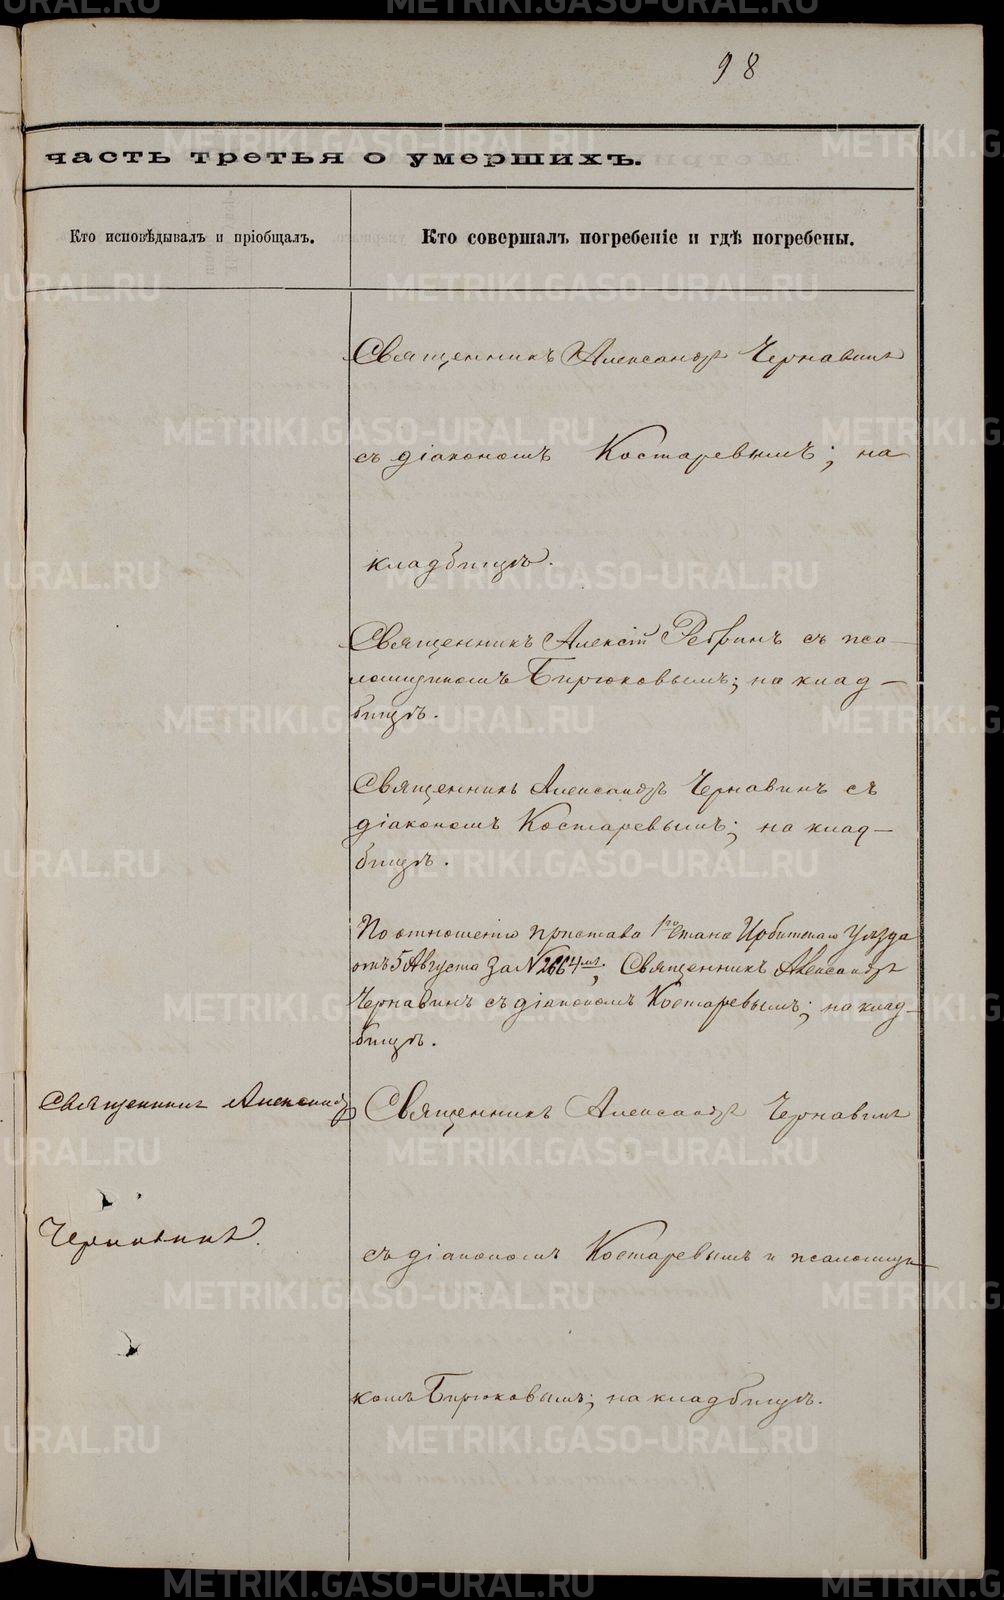 98
часть третья о умершихъ.
Кто исповѣдывалъ и пріобщалъ.
Кто совершалъ погребеніе и гдѣ погребены.
Священникъ Александръ Чернавинъ
съ діакономъ Костаревымъ; на
кладбищѣ.
Священникъ Алексій Ребринъ съ пса-
ломщикомъ Бирюковымъ; на клад-
бищѣ.
Священникъ Александръ Чернавинъ съ
діакономъ Костаревымъ; на клад-
бищѣ.
По отношенію пристава 1го стана Ирбитскаго Уѣзда
отъ 5 Августа за № 2664мъ; Священникъ Александръ
Чернавинъ съ діакономъ Костаревымъ; на клад-
бищѣ.
Священникъ Александръ
Чернавинъ.
Священникъ Александръ Чернавинъ
съ діакономъ Костаревымъ и псаломщи-
комъ Бирюковымъ; на кладбищѣ.
METRIKI.GASO-URAL.RU